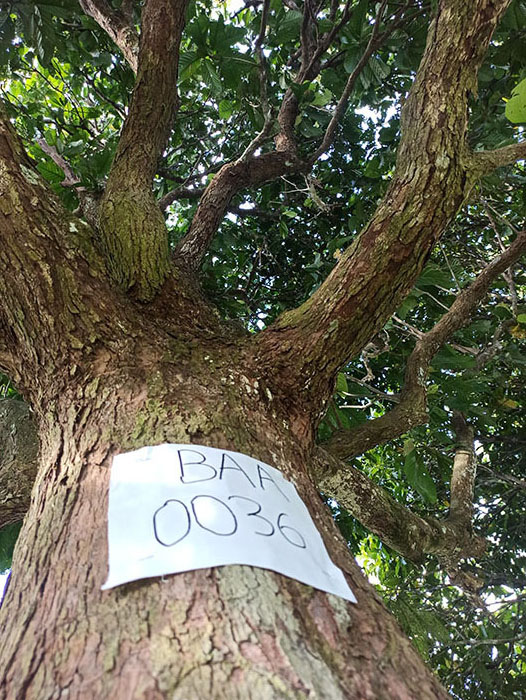 BAA
0036